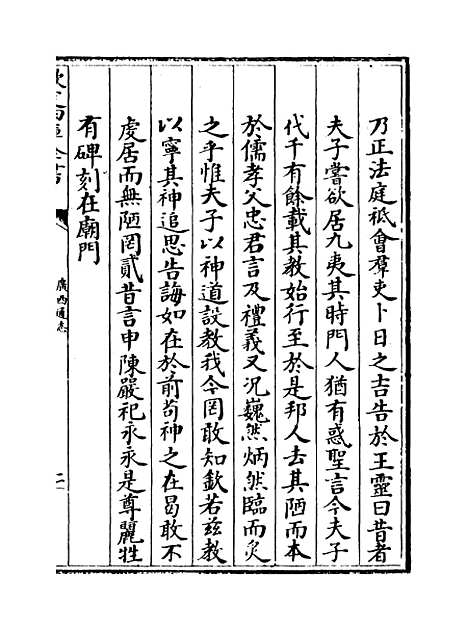 乃正法庭祗會羣吏卜日之吉告於王靈曰昔者
夫子嘗欲居九夷其時門人猶有惑聖言今夫子
代千有餘載其教始行至於是邦人去其陋而本
於儒孝父忠君言及禮義又況巍然炳然臨而炙
之乎惟夫子以神道設教我今罔敢知欽若兹教
以寧其神追思告誨如在於前苟神之在曷敢不
虔居而無陋罔貳昔言申陳嚴祀永永是尊麗牲
有碑刻在廟門
欽定四庫全書
廣西通志
二